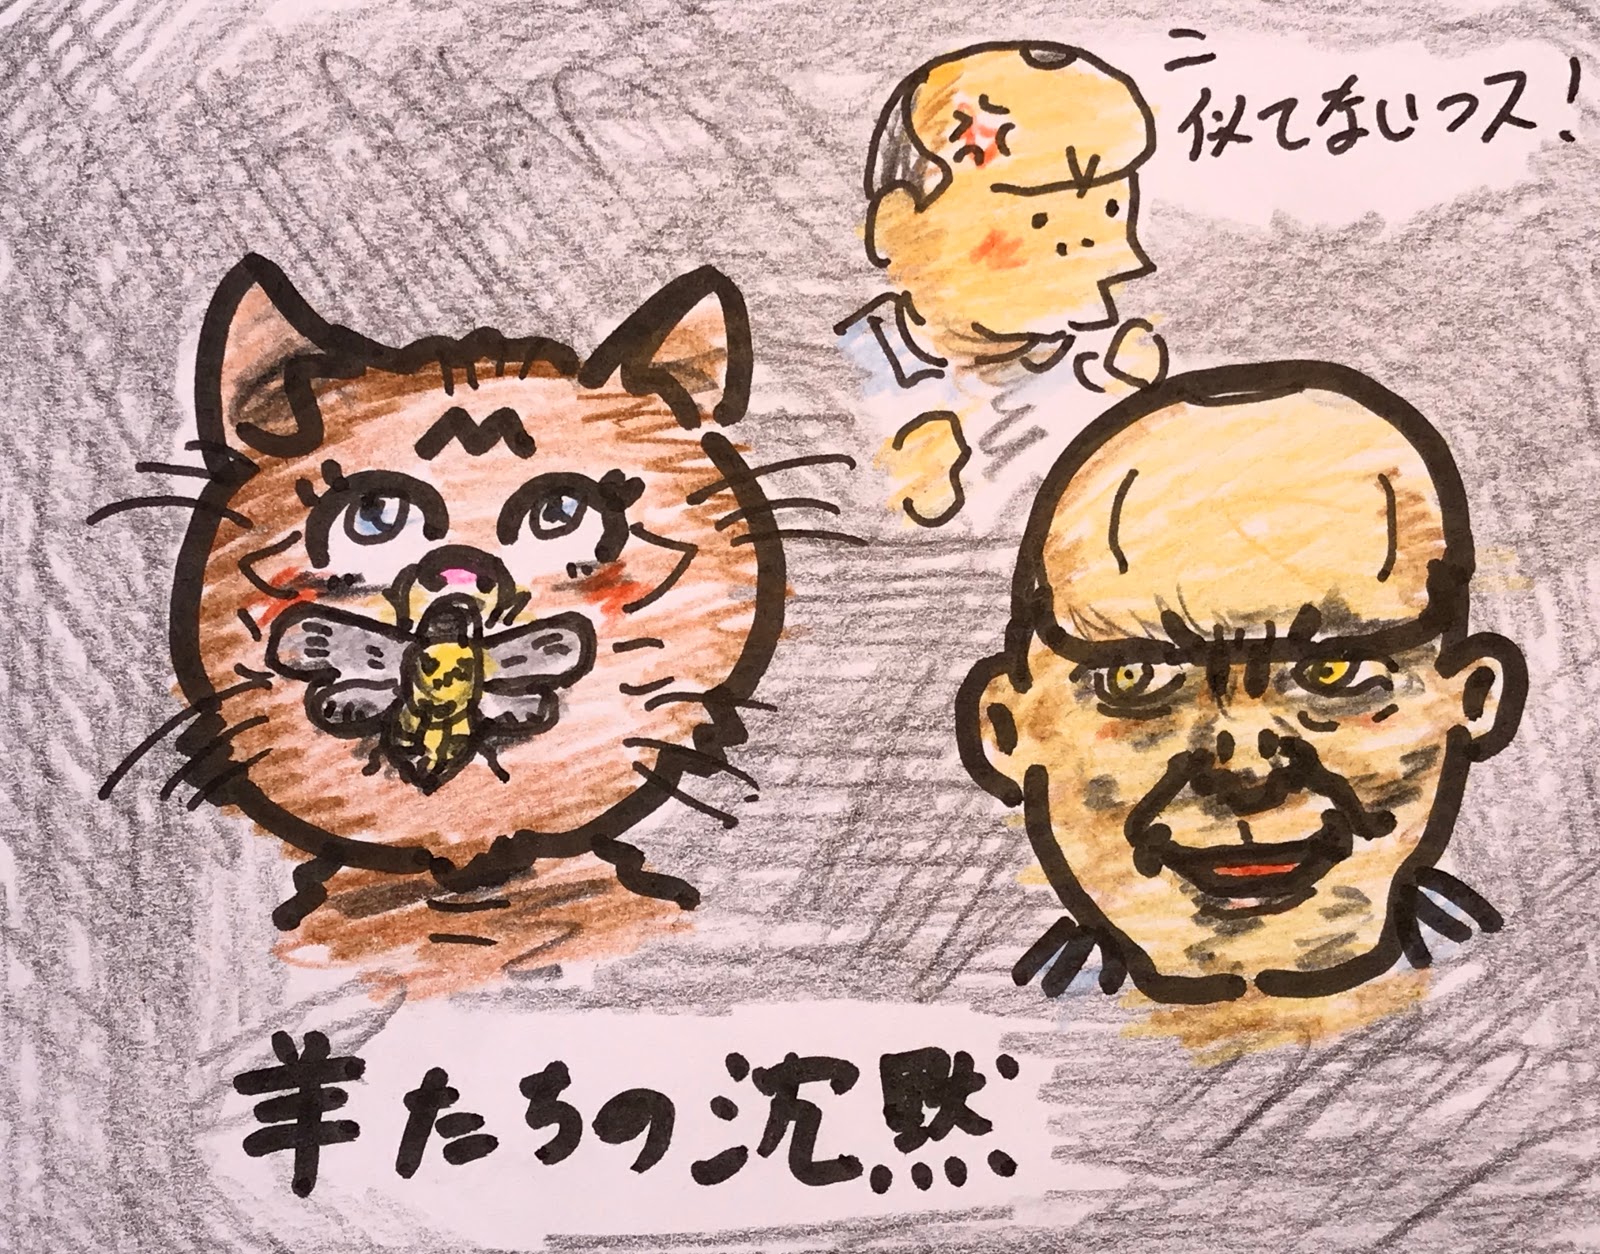 ニ
似てないっス!
羊たちの沈黙